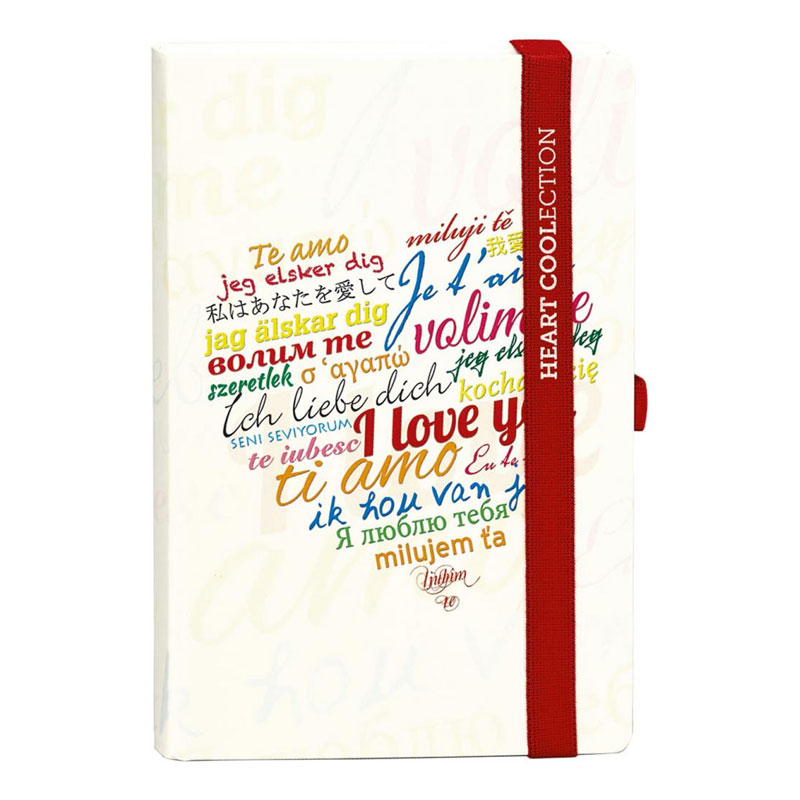 Te amo
miluji tě
jeg elsker dig
我愛
私はあなたを愛して
Je t'ai
jag älskar dig
volim te
волим те
jeg elsker deg
szeretlek
σ 'αγαπώ
kocham cię
Ich liebe dich
SENI SEVIYORUM
I love you
te iubesc
ti amo
Eu te
ik hou van j
Я люблю тебя
milujem ťa
ljubim
te
HEART COOLECTION